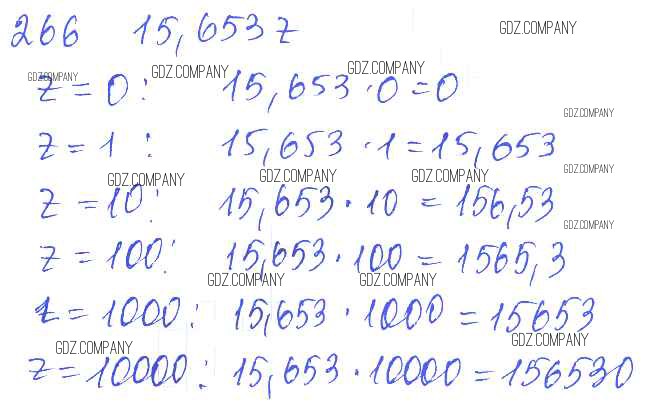 266 15,653 z
GDZ.COMPANY
GDZ.COMPANY GDZ.COMPANY GDZ.COMPANY
z = 0: 15,653 · 0 = 0
GDZ.COMPANY
z = 1: 15,653 · 1 = 15,653
GDZ.COMPANY
GDZ.COMPANY GDZ.COMPANY GDZ.COMPANY
z = 10: 15,653 · 10 = 156,53
GDZ.COMPANY
z = 100: 15,653 · 100 = 1565,3
GDZ.COMPANY GDZ.COMPANY
z = 1000: 15,653 · 1000 = 15653
GDZ.COMPANY GDZ.COMPANY
z = 10000: 15,653 · 10000 = 156530